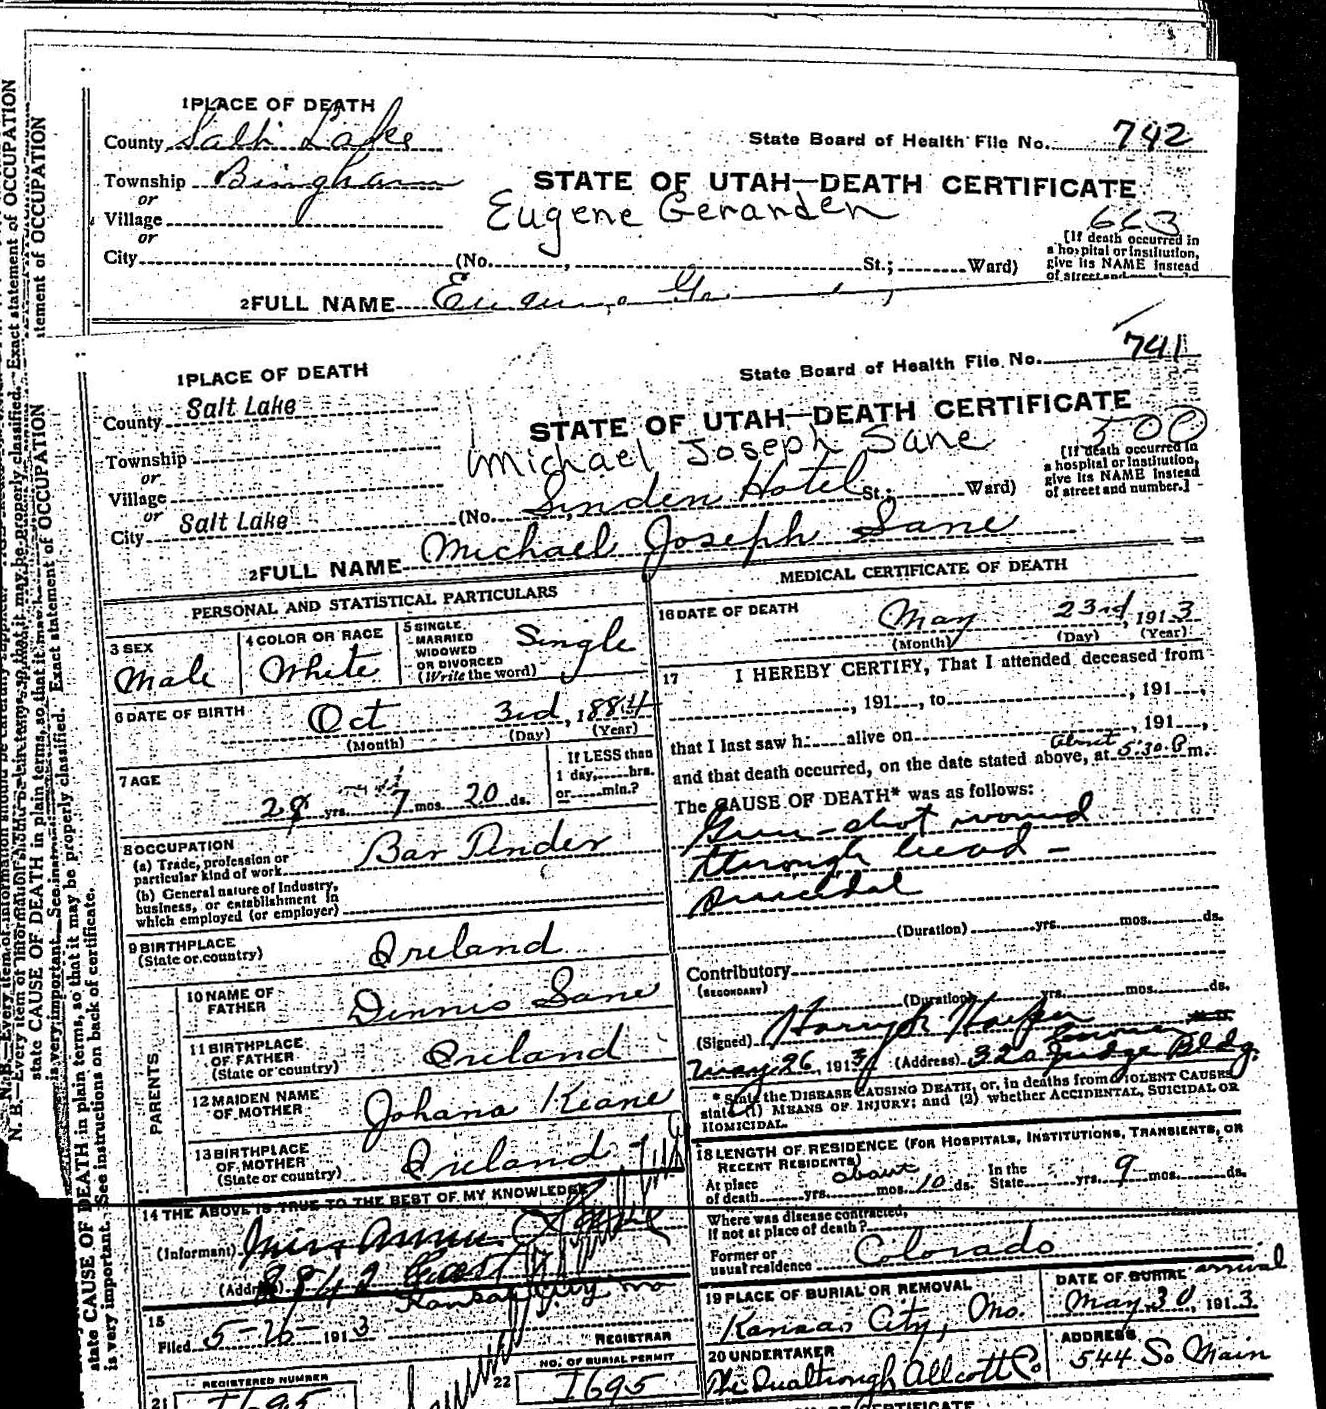 1 PLACE OF DEATH
County Salt Lake
State Board of Health File No. 742
Township Bingham
STATE OF UTAH—DEATH CERTIFICATE
or
Eugene Gerarden
663
Village
or
City (No. , St.; Ward)
[If death occurred in
a hospital or institution,
give its NAME instead
of street and
2 FULL NAME
1 PLACE OF DEATH
State Board of Health File No. 741
County Salt Lake
STATE OF UTAH—DEATH CERTIFICATE
500
Township
Michael Joseph Sane
or
Village
or
City Salt Lake (No. Linden Hotel St.; Ward)
[If death occurred in
a hospital or institution,
give its NAME instead
of street and number.]
2 FULL NAME Michael Joseph Sane
PERSONAL AND STATISTICAL PARTICULARS
3 SEX
Male
4 COLOR OR RACE
White
5 SINGLE
MARRIED
WIDOWED
OR DIVORCED
(Write the word)
Single
6 DATE OF BIRTH
Oct 3rd, 1884
(Month) (Day) (Year)
7 AGE
28 yrs. 7 mos. 20 ds.
If LESS than
1 day, hrs.
or min.?
8 OCCUPATION
(a) Trade, profession or
particular kind of work
Bar Tender
(b) General nature of Industry,
business, or establishment in
which employed (or employer)
9 BIRTHPLACE
(State or country)
Ireland
PARENTS
10 NAME OF
FATHER
Dennis Sane
11 BIRTHPLACE
OF FATHER
(State or country)
Ireland
12 MAIDEN NAME
OF MOTHER
Johana Keane
13 BIRTHPLACE
OF MOTHER
(State or country)
Ireland
14 THE ABOVE IS TRUE TO THE BEST OF MY KNOWLEDGE
(Informant) Miss
(Address)
Kansas City Mo
15
Filed 5-26- 1913
REGISTRAR
REGISTERED NUMBER
21 I695
NO. OF BURIAL PERMIT
22 I695
MEDICAL CERTIFICATE OF DEATH
16 DATE OF DEATH
May 23rd, 1913
(Month) (Day) (Year)
17 I HEREBY CERTIFY, That I attended deceased from
, 191 , to , 191 ,
that I last saw h alive on , 191 ,
and that death occurred, on the date stated above, at about 5:30 P m.
The CAUSE OF DEATH* was as follows:
Gun-shot wound
through head -
Suicidal
(Duration) yrs. mos. ds.
Contributory
(SECONDARY)
(Duration) yrs. mos. ds.
(Signed) Harry
May 26, 1913 (Address) 320 Judge Bldg.
* State the DISEASE CAUSING DEATH, or, in deaths from VIOLENT CAUSES
state (1) MEANS OF INJURY; and (2) whether ACCIDENTAL, SUICIDAL OR
HOMICIDAL.
18 LENGTH OF RESIDENCE (FOR HOSPITALS, INSTITUTIONS, TRANSIENTS, OR
RECENT RESIDENTS)
At place
of death yrs. about mos. 10 ds.
In the
State yrs. 9 mos. ds.
Where was disease contracted,
if not at place of death?
Former or
usual residence Colorado
19 PLACE OF BURIAL OR REMOVAL
Kansas City, Mo.
DATE OF BURIAL arrival
May 30, 1913
20 UNDERTAKER
ADDRESS
544 So Main
CERTIFICATE
N. B.—Every item of information should be carefully supplied.
state CAUSE OF DEATH in plain terms, so that it may be properly classified. Exact statement of OCCUPATION
is very important. See instructions on back of certificate.